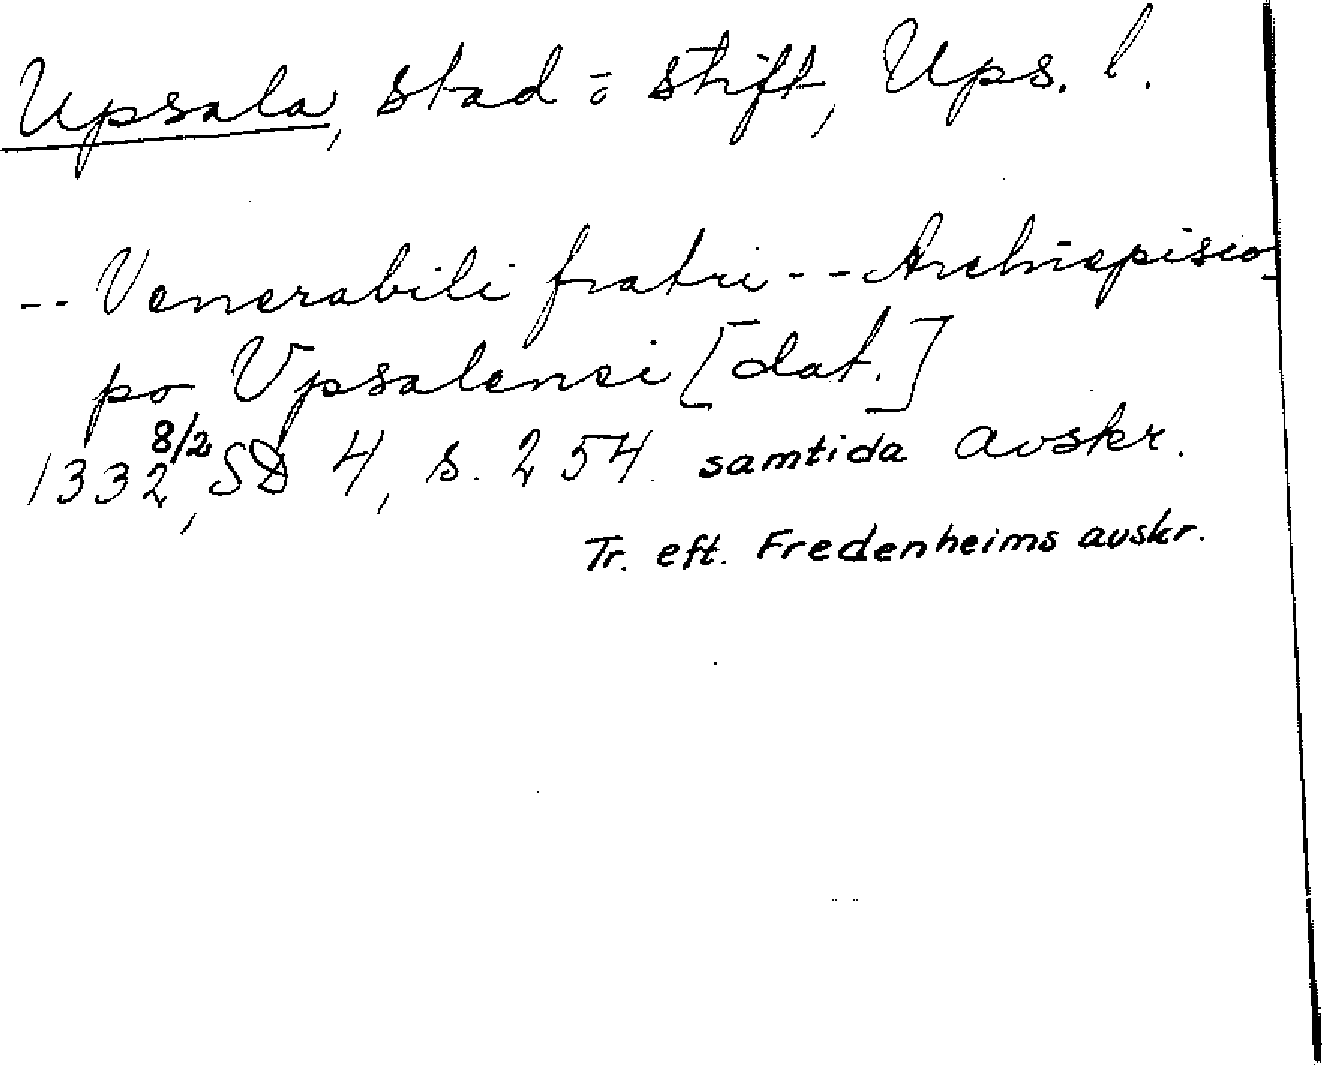 Upsala, stad o. stift, Ups. l.
-- Venerabili fratri -- Archiepisco-
po Vpsalensi [dat.]
1332 8/2, SD 4, s. 254. samtida avskr.
Tr. eft. Fredenheims avskr.